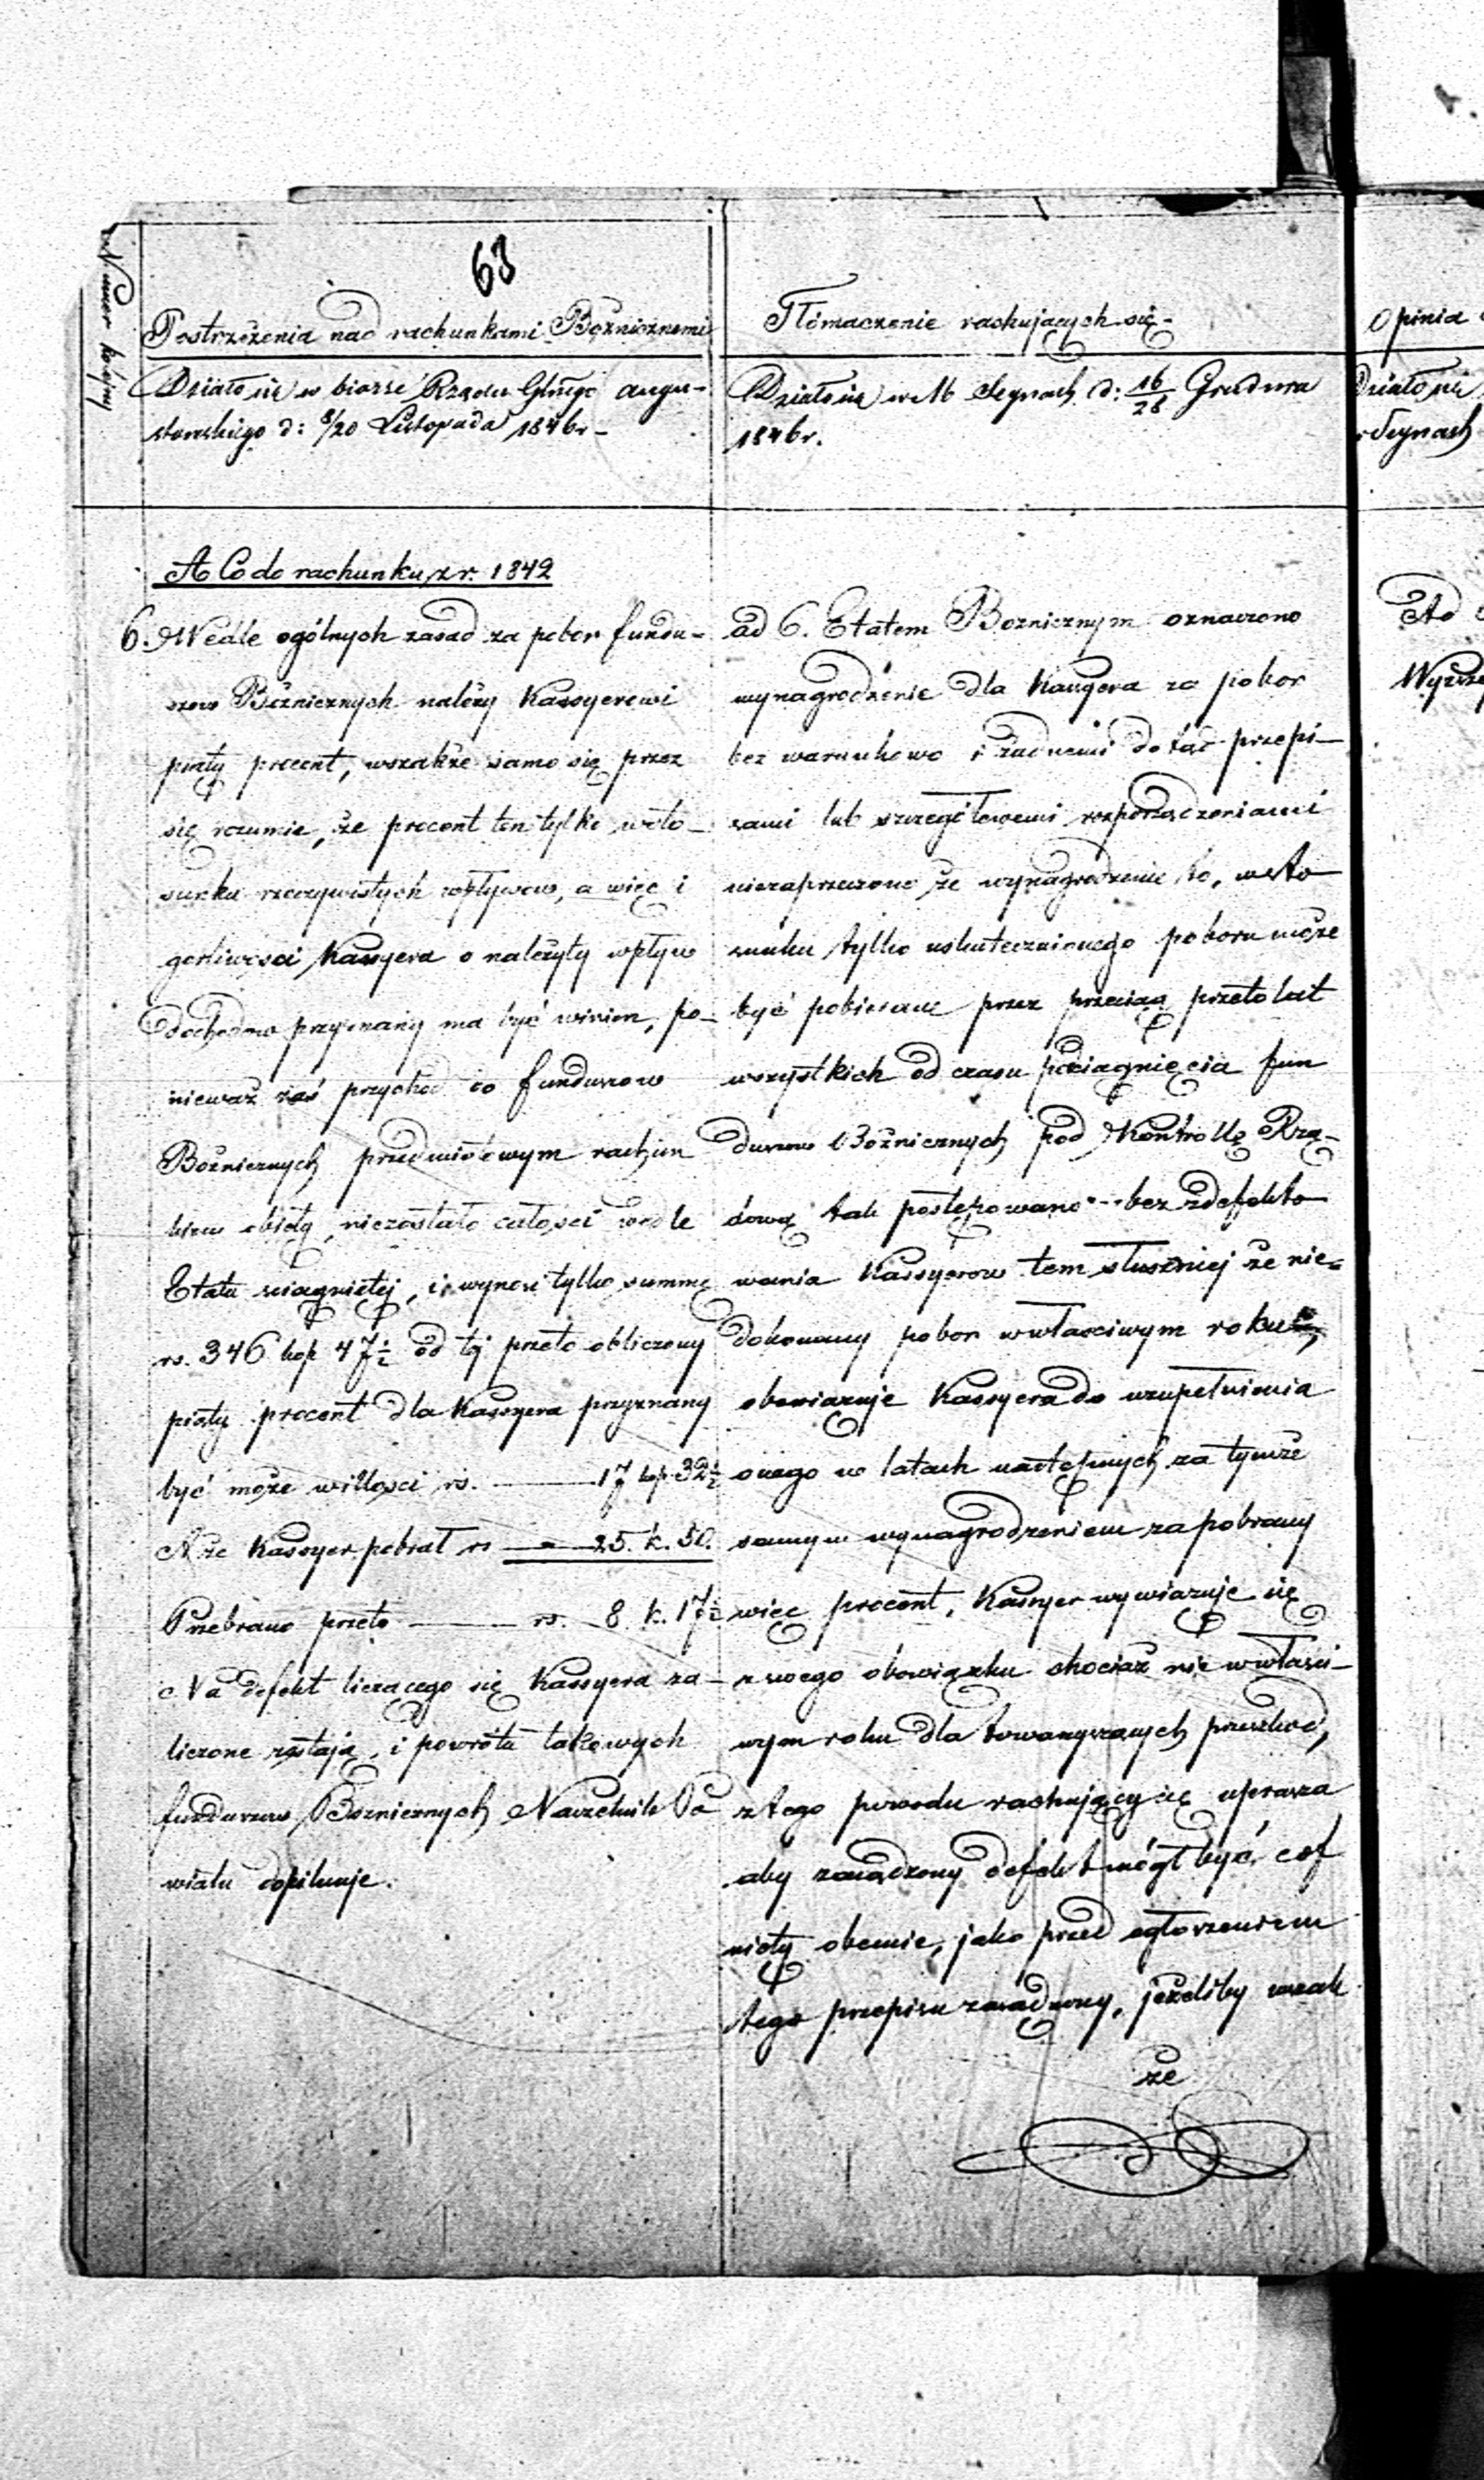 63
Numer kolejny
Postrzeżenia nad rachunkami Bóżnicznemi
Działo się w biórze Rządu Gbłngo augu-
stowskiego d: 8/20 Listopada 1846r-
A Co do rachunku z r. 1842
6. Wedle ogólnych zasad za pobor fundu-
szow Bóżnicznych należy Kassyerowi
piąty procent, wszakże samo się przez
się rozumie, że procent ten tylko wsto-
sunku rzeczywistych wpływow, a więc i
gorliwosci Kassyera o należyty wpływ
dochodow przyznany ma być winien, po-
nieważ zaś przychod co funduszow
Bożnicznych przedmiotowym rachun
kiem objęty, niezostało całosci wedle
Etatu sciągniętej, i wynosi tylko summę
rs. 346 kop 47½ od tej przeto obliczony
piąty procent dla Kassyera przyznany
być może wilłosci rs. 17 kop 32½
A że Kassyer pobrał rs 25. k. 50.
Przebrano przeto rs. 8. k. 17½
Na defekt liczącego się Kassyera za-
liczone zostają, i powrótu takowych
funduszow Bożnicznych Naczelnik Po
wiatu dopilnuje.
Tłómaczenie rachujących się-
Działo się w M Sejnach d: 16/28 Grudnia
1846r.
ad 6. Etatem Boznicznym oznaczono
wynagrodzenie dla Kassyera za pobor
bez warunkowo i żadnemi dotąd przepi-
sami lub szczegółowemi rozporządzeniami
niezaprzeczono że wynagrodzenie to, w sto
sunku tylko uskutecznionego poboru może
być pobierane przez przeciąg przeto lat
wszystkich od czasu pociągnięcia fun
duszow Bożnicznych pod Kontrollę Rzą-
dową tak postępowano bez zdefekto
wania Kassyerow tem słuszniej że nie-
dokonany pobor wwłasciwym roku
obowiązuje Kassyera do uzupełnienia
onego w latach następnych za tymże
samym wynagrodzeniem za pobrany
więc procent, Kassyer wywiązuje się
z swego obowiązku chociaż nie wwłasci-
wym roku dla towarzyszących przeszkod,
z tego powodu rachujący się uprasza
aby zarządzony defekt mógł być cof
nięty obecnie, jako przed ogłoszeniem
tego przepisu zarządzony, jeżeliby wszak
że
Opinia
Działo się
Sejnach
Ad
Wyższe